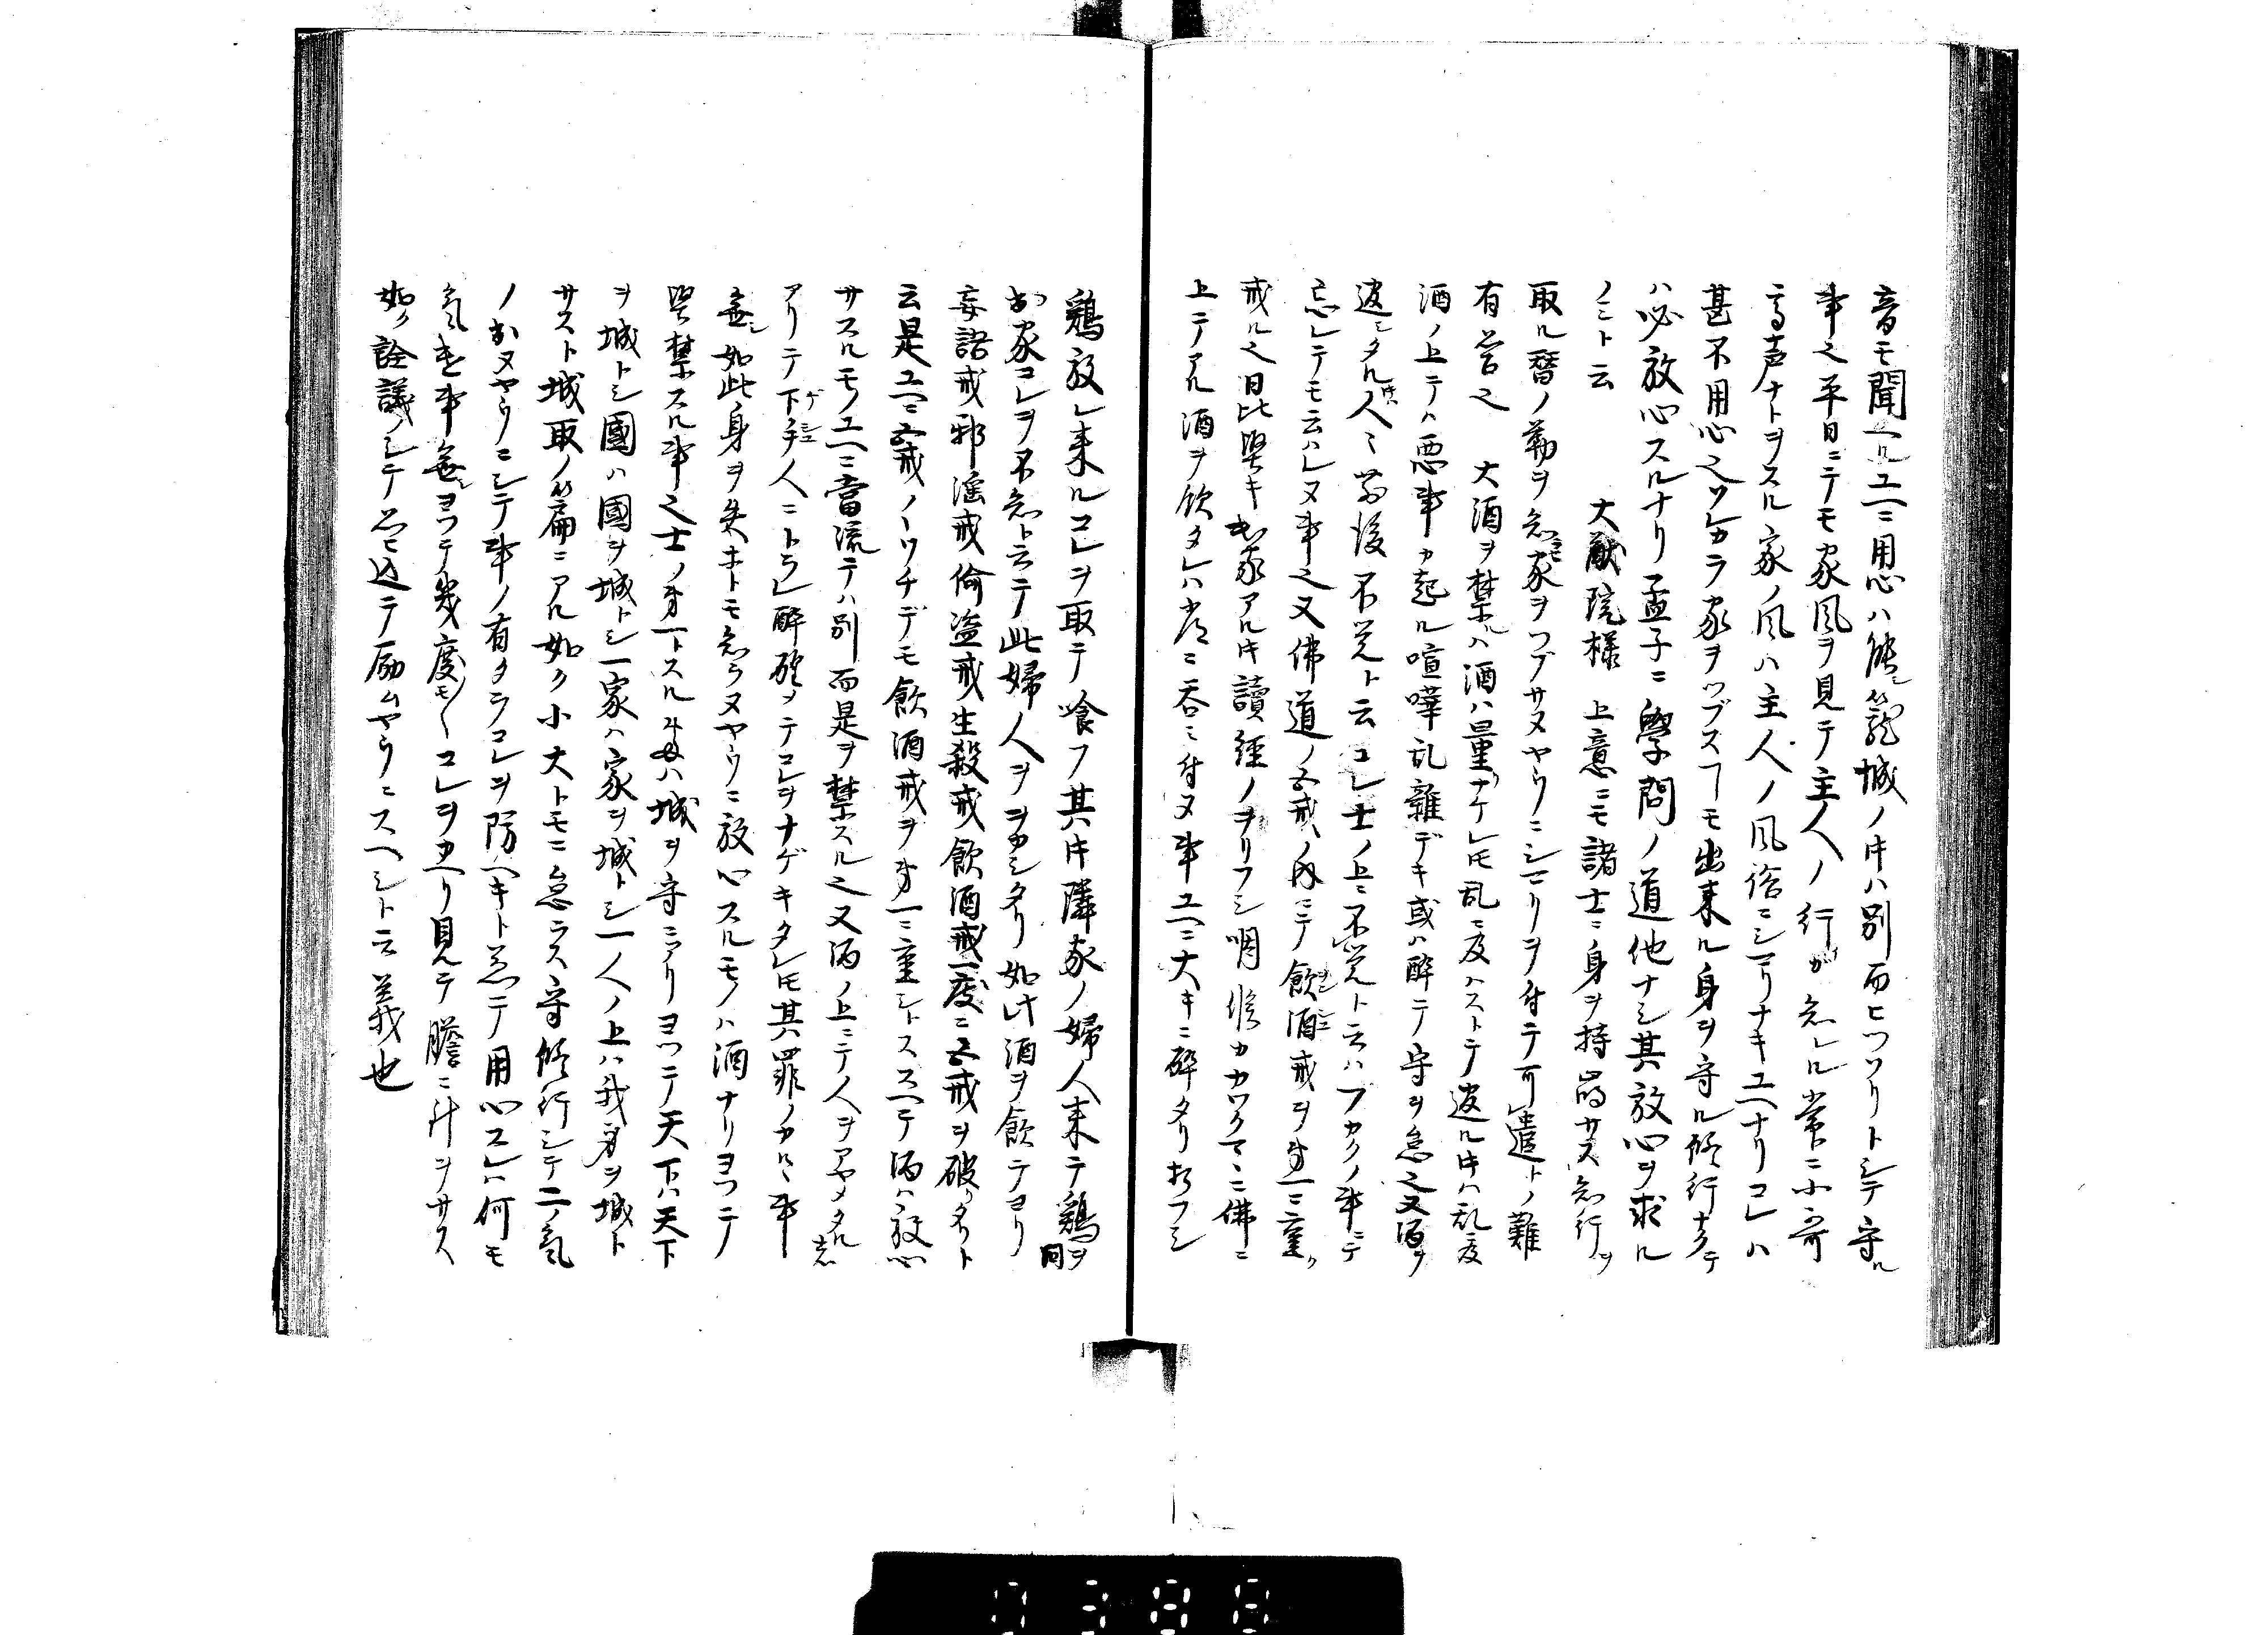 音モ聞ヘルユヘニ用心ハ能シ籠城ノ時ハ別而ヒツソリトシテ守ル
事也平日ニテモ家風ヲ見テ主人ノ行カ知レル常ニ小哥
高声ナトヲスル家ノ風ハ主人ノ風俗ニシマリナキユヘナリコレハ
甚不用心也ワレカラ家ヲツブスコトモ出来ル身ヲ守ル修行ナクテ
ハ必放心スルナリ孟子ニ學問ノ道他ナシ其放心ヲ求ル
ノミト云　大猷院様　上意ニモ諸士ニ身ヲ持崩サス知行ヲ
取ル替ノ勤ヲ家ヲツブサヌヤウニシマリヲ付テ可遣トノ難
有管也　大酒ヲ禁ルハ酒ハ量ナケレ𪜈乱ニ及ハストテ過ル時ハ乱ニ及
酒ノ上テハ悪事カ起ル喧嘩乱雑デキ或ハ酔テ守ヲ怠也又酒ヲ
過シタル人ハ前後不覚ト云コレ士ノ上ニ不覚ト云ハフカクノ事ニテ
忘レテモ云ハレヌ事也又佛道ノ五戒ノ内ニテ飲酒戒ヲ第一ニ重ク
戒ル也旦此堅キ出家アル時讀經ノヲリフシ明障カカワクマヽニ佛ニ
上テアル酒ヲ飲タレハ常ニ呑ミ付ヌ事ユヘニ大キニ酔タリ折フシ
鶏放レ来ルコレヲ取テ喰フ其時隣家ノ婦人来テ鶏ヲ問
出家コレヲ不知ト云テ此婦人ヲヲカシタリ如此酒ヲ飲テヨリ
妄語戒邪淫戒偸盗戒生殺戒飲酒戒一度ニ五戒ヲ破リタリト
云是ユヘニ五戒ノウチデモ飲酒戒ヲ第一ニ重シトススヘテ酒ハ放心
サスルモノユヘニ當流テハ別而是ヲ禁スル也又酒ノ上ニテ人ヲアヤメタル志
アリテ下手人ニトラレ酔醒テコレヲナゲキタレ𪜈其罪ノカルヽ事
無シ如此ノ身ヲ失ホトモ知ラヌヤウニ放心スルモノハ酒ナリヨツテ
堅禁スル事也士ノ第一トスル所ハ城ヲ守ニアリヨツテ天下ハ天下
ヲ城トシ國ハ國ヲ城トシ一家ハ家ヲ城トシ一人ノ上ハ我身ヲ城ト
サスト城取ノ篇ニアル如ク小大トモニ怠ラス守修行シテ二ノ氣
ノ出ヌヤウニシテ事ノ有タラコレヲ防ヘキト忘テ用心スレハ何モ
氣遣事無シヨツテ幾度モ〳〵コレヲカヘリ見テ膳ニ汁ヲサス
如ク詮議シテ思込テ励ムヤウニスヘシト云義也